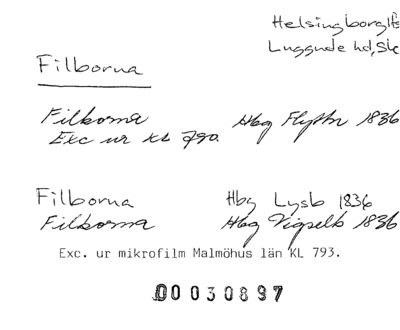 Helsingborg lfs
Luggude hd, Sk
Filborna
Filborna Hbg Flyttn 1836
Exc ur KL 790.
Filborna Hbg Lysb 1836
Filborna Hbg Vigselb 1836
Exc. ur mikrofilm Malmöhus län KL 793.
00030897